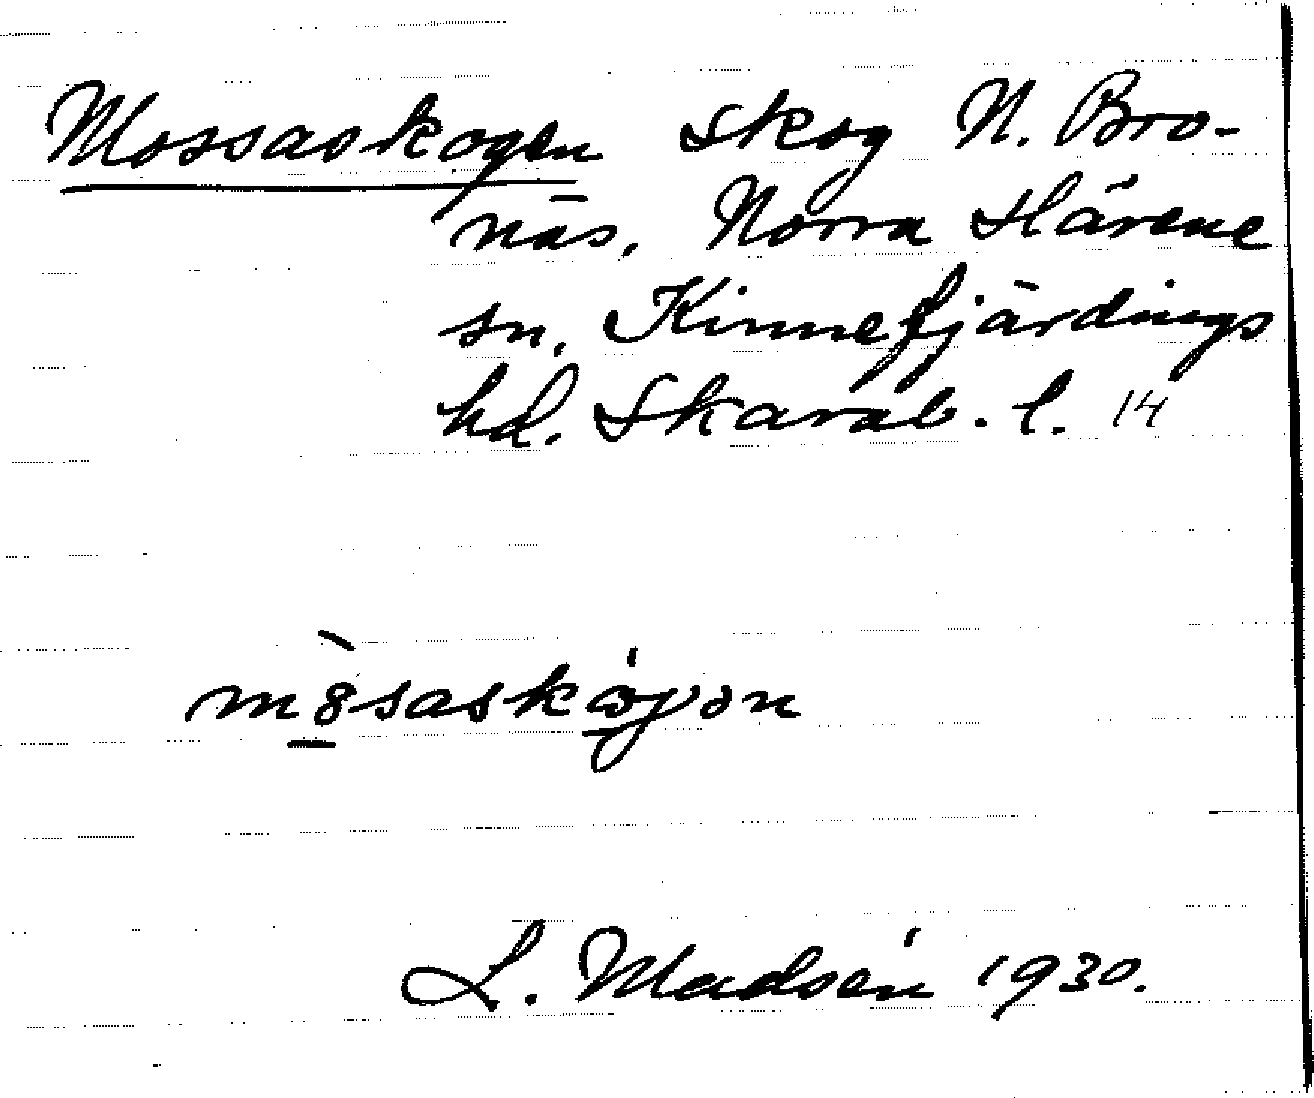 Mossaskogen Skog N. Bro-
näs, Norra Härene
sn, Kinnefjärdings
hd. Skarab. l. 14
L. Madsén 1930.